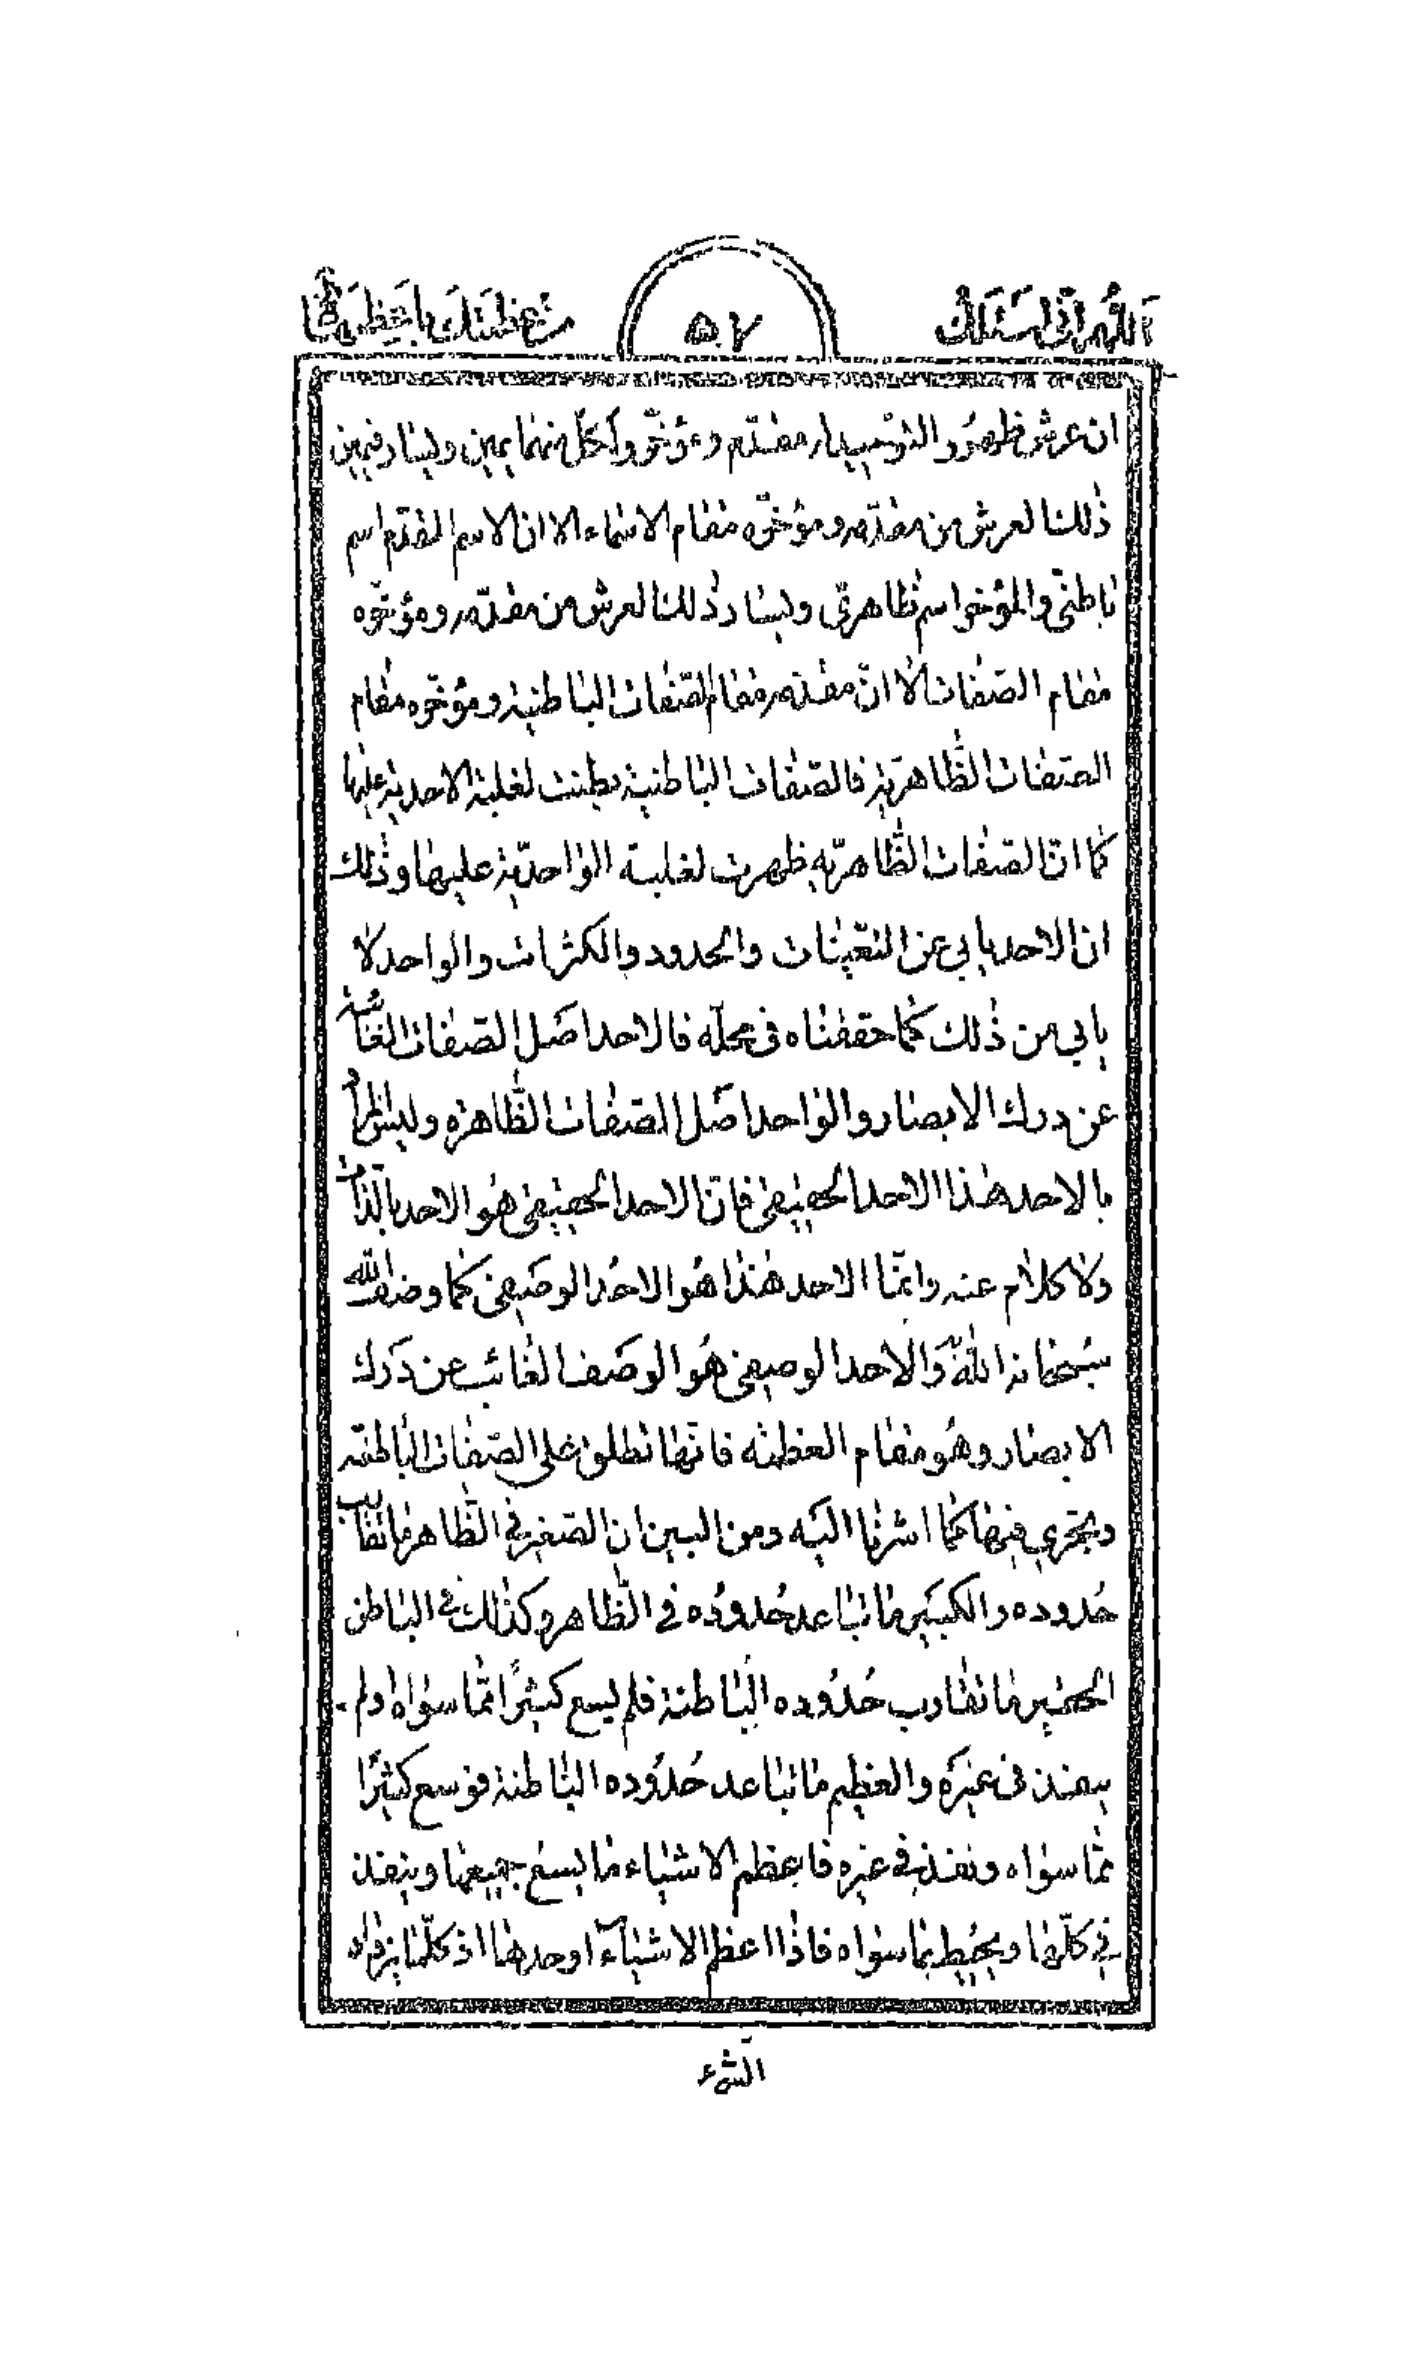 اللهم اني اسئلك
٥٧
من عظمتك باعظمها
ان عرش ظهور التوحيد له مقدّم ومؤخّر ولكلّ منهما يمين ويسار فيمين
ذلك العرش من مقدّمه ومؤخّره مقام الاسماء الا ان الاسم المقدّم اسم
باطنيّ والمؤخر اسم ظاهريّ ويسار ذلك العرش من مقدّمه ومؤخّره
مقام الصفات الا انّ مقدّمه مقام الصّفات الباطنية ومؤخّره مقام
الصفات الظّاهريّة فالصّفات الباطنية بطنت لغلبة الاحدية عليها
كما انّ الصفات الظّاهريّه ظهرت لغلبة الواحديّة عليها وذلك
ان الاحد يابي عن التعيّنات والحدود والكثرات والواحد لا
يابي من ذلك كما حققناه في محلّه فالاحد اصل الصّفات الغائبة
عن درك الابصار والواحد اصل الصّفات الظّاهرة وليس المراد
بالاحد هذا الاحد الحقيقي فانّ الاحد الحقيقي هو الاحد بالذّات
ولا كلام عنه وانّما الاحد هذا هو الاحد الوصفي كما وصف الله
سبحانه الله والاحد الوصفي هو الوصف الغائب عن درك
الابصار وهو مقام العظمة فانّها تطلق على الصّفات الباطنة
ويجري فيها كما اشرنا اليه ومن البين ان الصّغير في الظّاهر ما تقارب
حدوده والكبير ما تباعد حدوده في الظّاهر وكذلك في الباطن
الحقير ما تقارب حدوده الباطنة فلم يسع كثيرًا ممّا سواه ولم
ينفذ في غيره والعظيم ما تباعد حدوده الباطنة فوسع كثيرًا
ممّا سواه ونفذ في غيره فاعظم الاشياء ما يسع جميعها وينفذ
في كلّها ويحيط بما سواه فاذا اعظم الاشياء اوحدها اذ كلّما يزداد
الشيء